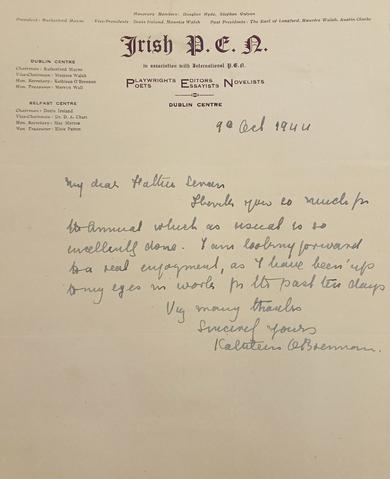 Honorary Members: Douglas Hyde, Stephen Gwynn
President: Rutherford Mayne Vice-Presidents: Denis Ireland, Maurice Walsh Past Presidents: The Earl of Longford, Maurice Walsh, Austin Clarke
Irish P.E.N.
in association with International P.E.N.
PLAYWRIGHTS EDITORS NOVELISTS
POETS ESSAYISTS
DUBLIN CENTRE
DUBLIN CENTRE
Chairman: Rutherford Mayne
Vice-Chairman: Maurice Walsh
Hon. Secretary: Kathleen O'Brennan
Hon. Treasurer: Mervyn Wall
BELFAST CENTRE
Chairman: Denis Ireland
Vice-Chairman: Dr. D. A. Chart
Hon. Secretary: May Morton
Hon. Treasurer:
9th Oct 1944
My dear Father
Thank you so much for
the Annual which as usual is so
excellently done. I am looking forward
to a real enjoyment, as I have been up
to my eyes in work for the past ten days
Very many thanks
Sincerely yours
Kathleen O'Brennan.